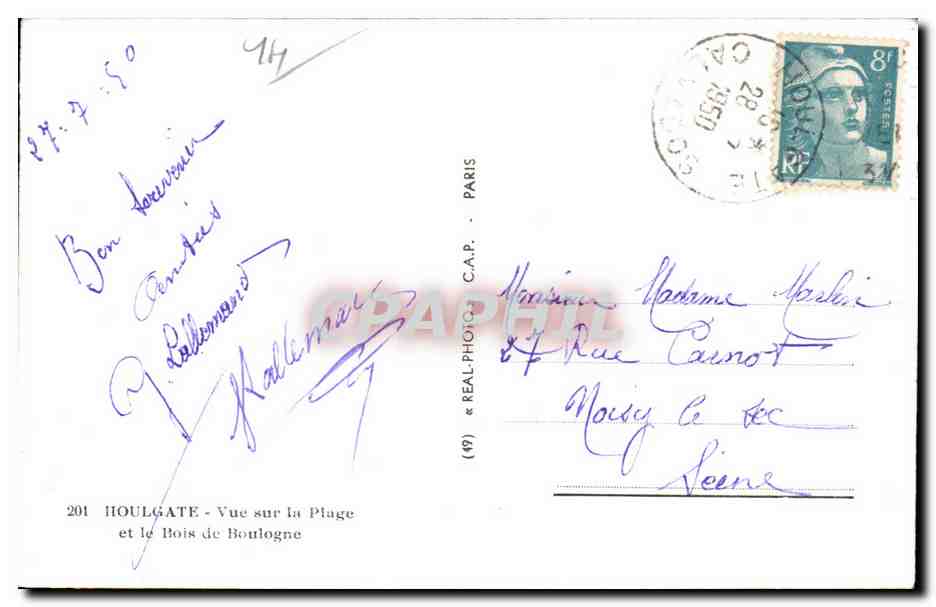 14
27-7-50
Bon souvenir
amitiés
J. Lallemand
Lallemand
201 HOULGATE - Vue sur la Plage
et le Bois de Boulogne
(49) « REAL-PHOTO » C.A.P. - PARIS
CPAPHIL
HOULGATE
CALVADOS
28
1950
8f
POSTES
RF
Monsieur Madame Marlin
27 Rue Carnot
Noisy le Sec
Seine